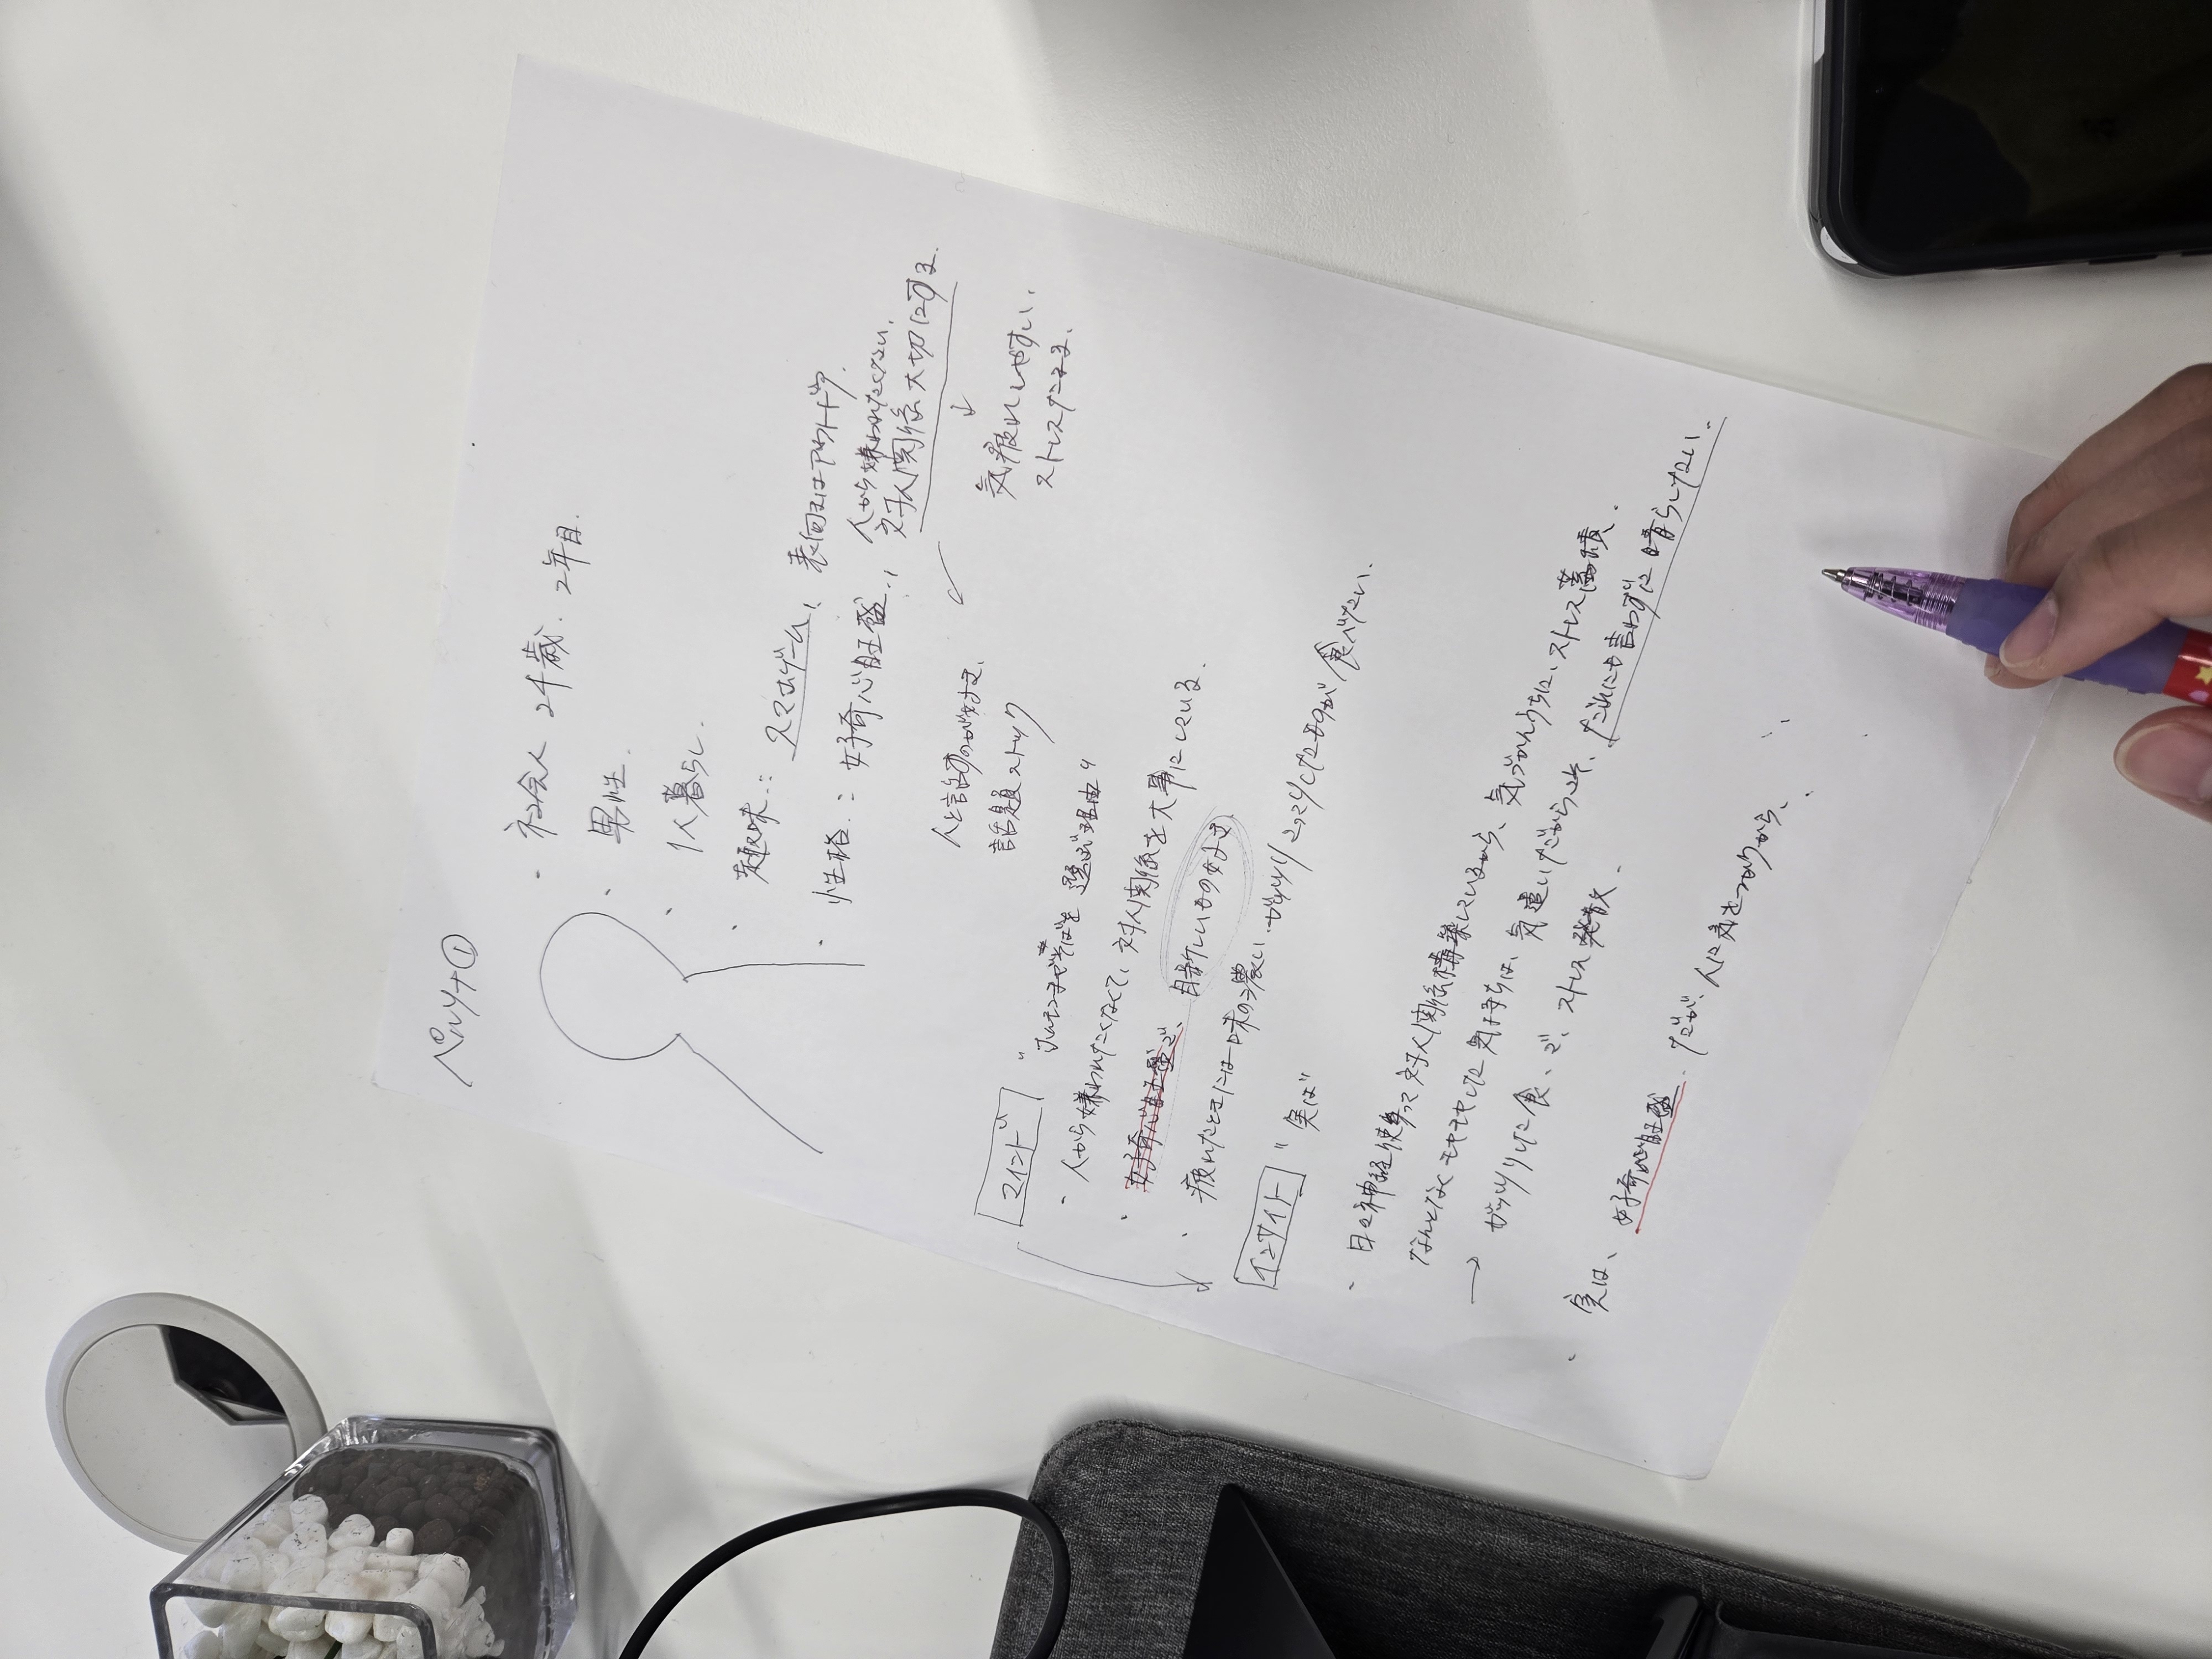 ペルソナ①
・社会人 24歳. 2年目.
・男性.
・1人暮らし.
・趣味:: スマホゲーム、表向きはアウトドア.
人から嫌われたくない.
・性格:: 好奇心旺盛.、対人関係大切にする.
↓
人と話すのが好き. 気疲れしやすい.
話題ストック ストレスたまる.
マインド "
を選ぶ理由"
・人から嫌われたくなくて、対人関係を大事にしている.
・好奇心旺盛で、目新しいもの好き
・疲れたときには味の濃い・ガッツリこってりしたものが食べたい.
インサイト "実は"
・日々神経使って対人関係構築しているから、気づかんうちに、ストレス蓄積.
なんとなくモヤモヤした気持ちは、気遣いだからこそ、だれにも言わずに晴らしたい.
→ ガッツリした食、で、ストレス発散.
・実は、好奇心旺盛. だが、人に気をつかうから、